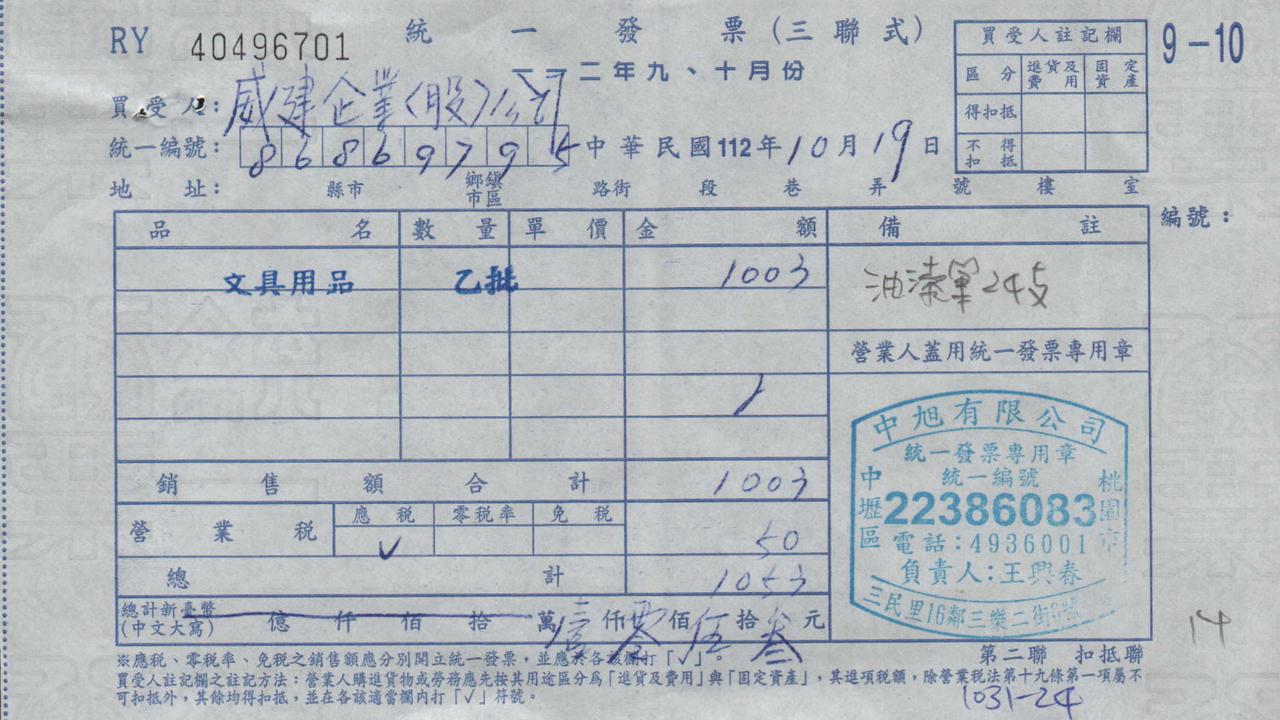 RY 40496701 統一發票(三聯式)
一一二年九、十月份
9-10
買受人註記欄
區分 進貨及費用 固定資產
得扣抵
不得扣抵
買受人:威建企業(股)公司
統一編號:86869795 中華民國112年10月19日
地址: 縣市 鄉鎮市區 路街 段 巷 弄 號 樓 室
編號:
品名 數量 單價 金額 備註
文具用品 乙批 1003 油漆筆24支
營業人蓋用統一發票專用章
銷售額合計 1003
營業稅 應稅 零稅率 免稅
✓ 50
總計 1053
總計新臺幣(中文大寫) 億 仟 佰 拾 萬壹仟零佰伍拾叁元
中旭有限公司
統一發票專用章
統一編號
22386083
中壢區
桃園市
電話:4936001
負責人:王興春
三民里16鄰三樂二街
14
第二聯 扣抵聯
※應稅、零稅率、免稅之銷售額應分別開立統一發票,並應於各該欄打「✓」。
買受人註記欄之註記方法:營業人購進貨物或勞務應先按其用途區分為「進貨及費用」與「固定資產」,其進項稅額,除營業稅法第十九條第一項屬不
可扣抵外,其餘均得扣抵,並在各該適當欄內打「✓」符號。
1031-24